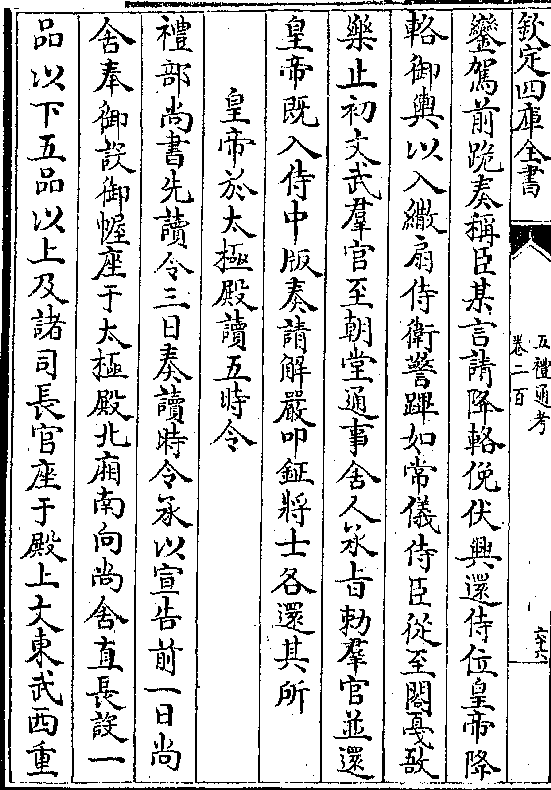 欽定四庫全書
五禮通考
卷二百
六十六
鑾駕前跪奏稱臣某言請降輅俛伏興還侍位皇帝降
輅御輿以入繖扇侍衛警蹕如常儀侍臣從至閤戞敔
樂止初文武羣官至朝堂通事舍人承旨勅羣官並還
皇帝既入侍中版奏請解嚴叩鉦將士各還其所
皇帝於太極殿讀五時令
禮部尚書先讀令三日奏讀時令承以宣告前一日尚
舍奉御設御幄座于太極殿北廂南向尚舍直長設一
品以下五品以上及諸司長官座于殿上文東武西重